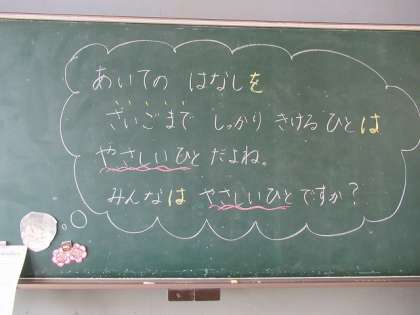 あいての はなしを
さいごまで しっかり きけるひとは
やさしいひとだよね。
みんなは やさしいひとですか？